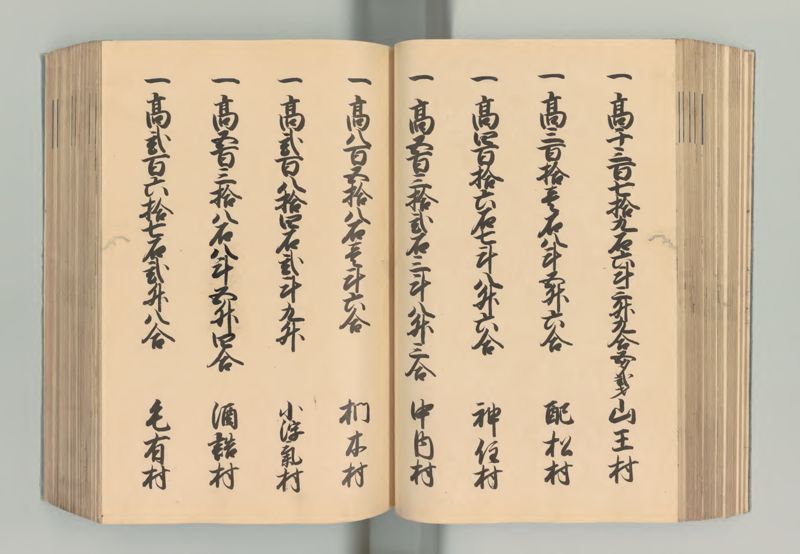 一高千三百七拾九石六斗三升九合五夕弐才 山王村
一高三百拾壱石八斗五升六合 配松村
一高四百拾六石七斗八升六合 神住村
一高五百三拾弐石三斗八升三合 中内村
一高八百五拾八石壱斗六合 椚木村
一高弐百八拾四石弐斗九升 小浮氣村
一高五百三拾八石八斗五升四合 酒詰村
一高弐百六拾七石弐升八合 毛有村